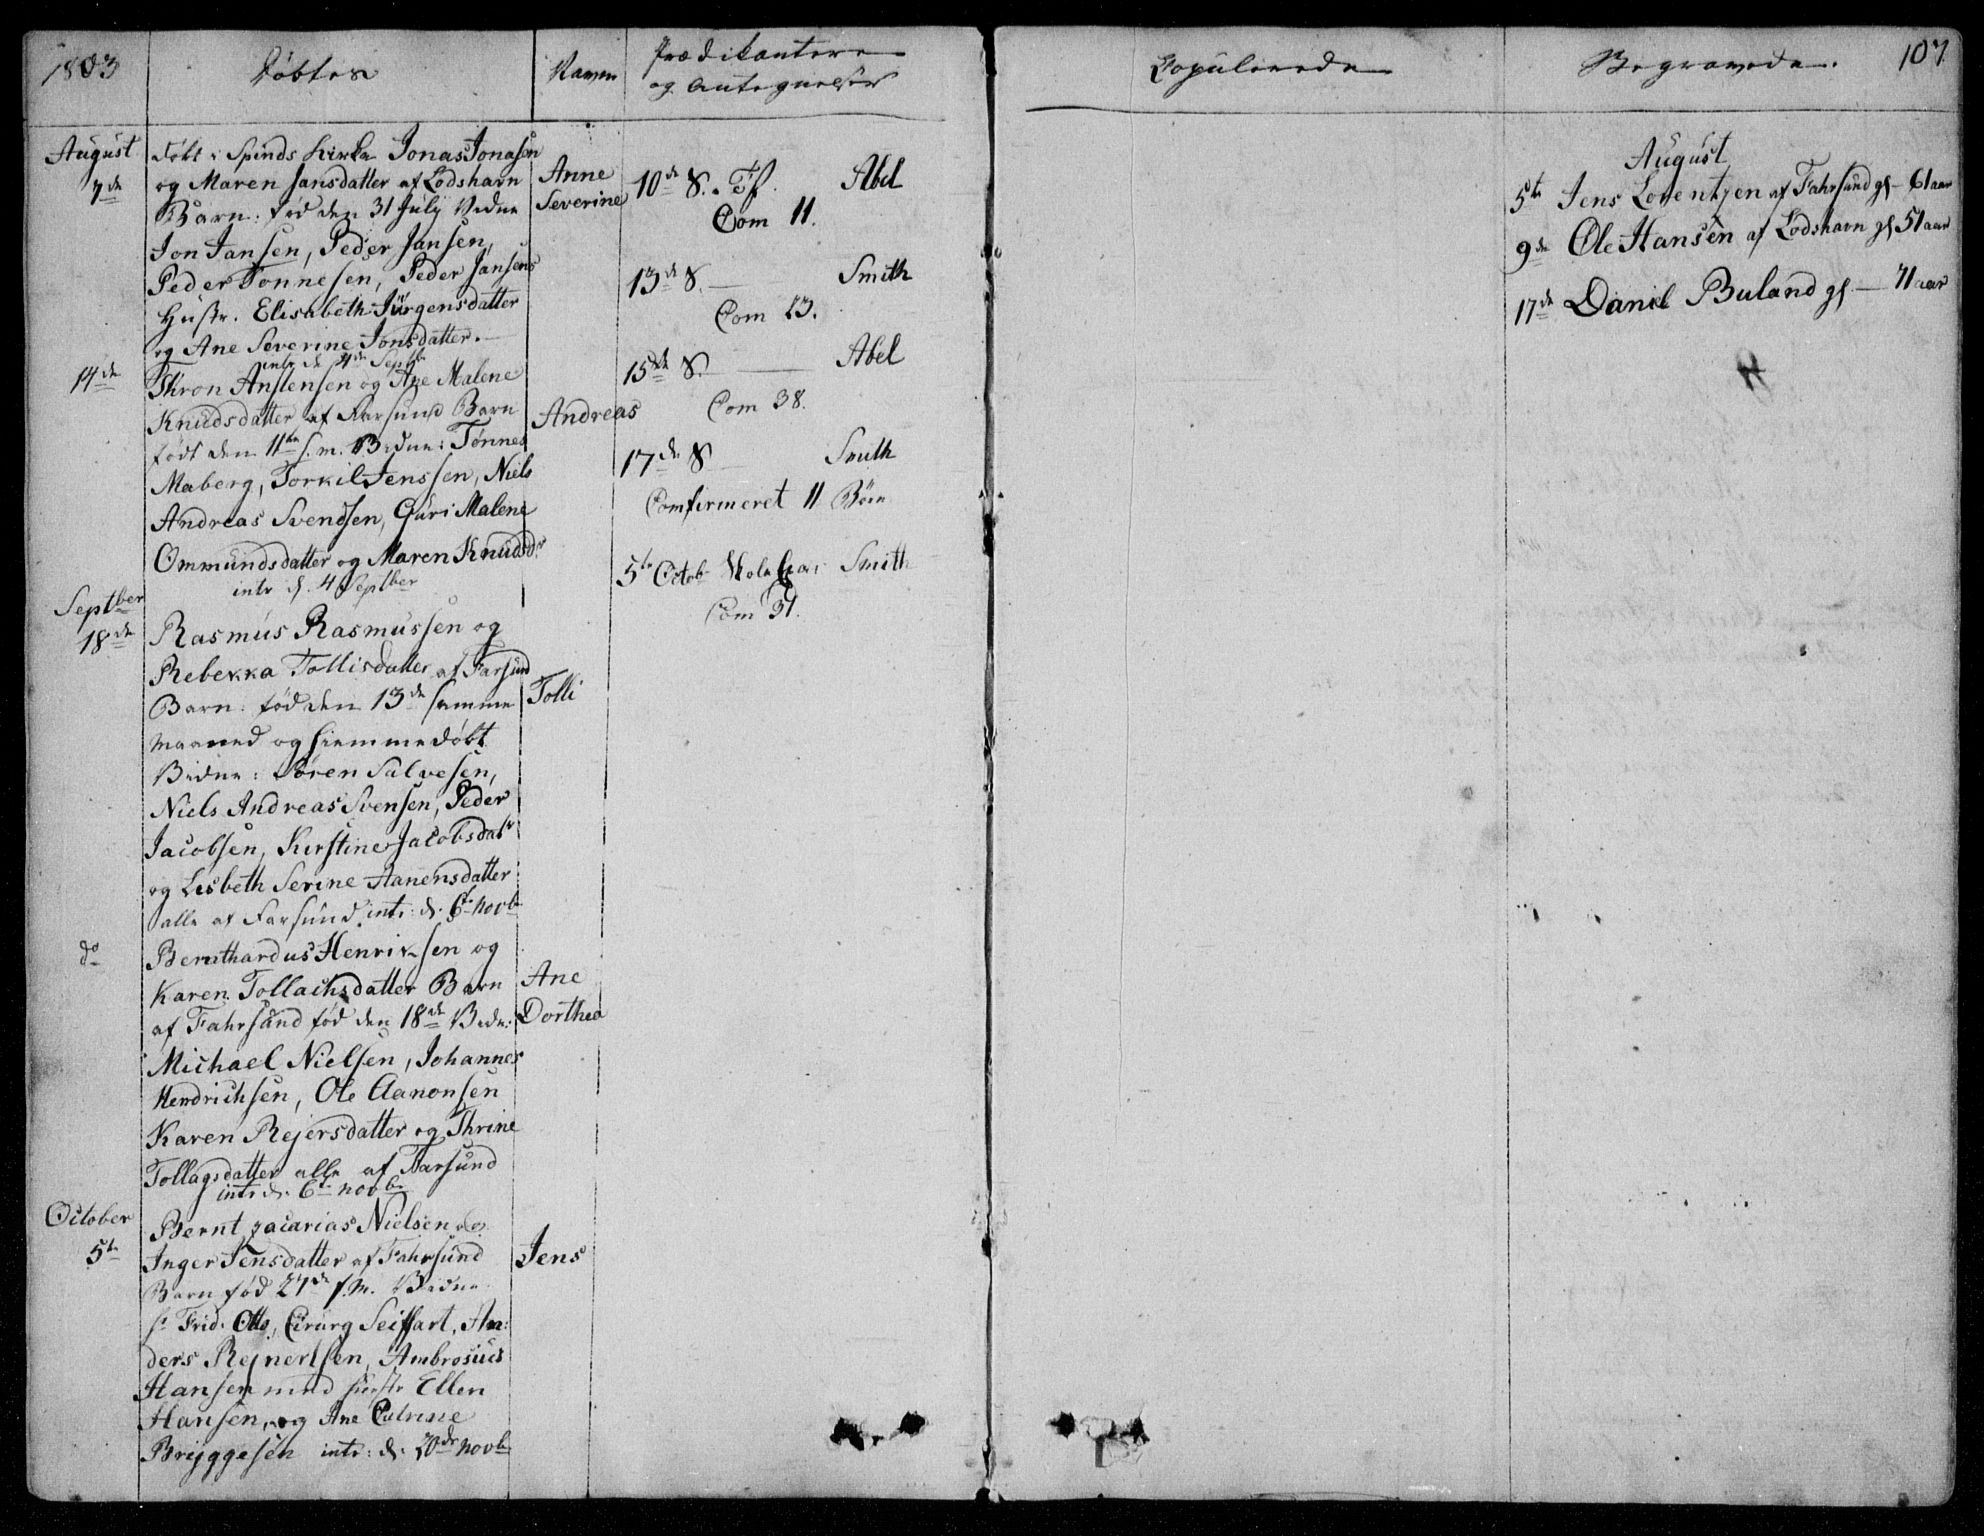 1803
Døbte
Navne
Prædikantere
og Antegnelser
Copulerede
Begravede.
107
August
7de
Døbt i Spinds Kirke Jonas Jonasen
og Maren Jansdatter af Lodshavn
Barn: fød den 31 July Vidne
Jon Jansen, Peder Jansen,
Peder Tønnesen, Peder Jansens
Hustr. Elisabeth Jürgensdatter
og Ane Severine Jonsdatter.
intr d. 4de Septb
Anne
Severine
14de
Thron Anstensen og Ane Malene
Knudsdatter af Farsund Barn
født den 11te s. m. Vidne: Tønnes
Maberg, Torkil Jenssen, Niels
Andreas Svendsen, Guri Malene
Ommundsdatter og Maren Knudsdr
intr d. 4 Septber
Andreas
Septber
18de
Rasmus Rasmussen og
Rebekka Tollisdatter af Farsund
Barn: fød den 13de samme
Maaned og hiemmedøbt
Vidne: Søren Salvesen,
Niels Andreas Svensen, Peder
Jacobsen, Kirstine Jacobsdatr
og Lisbeth Serine Aanensdatter
alle af Farsund intr: d. 6te novb
Tolli
do
Bernthardus Henriksen og
Karen Tollachsdatter Barn
af Fahrsund fød den 18de Vidn:
Michael Nielsen, Johannes
Hendrichsen, Ole Aanonsen
Karen Rejersdatter og Thrine
Tollagsdatter alle af Farsund
intr d. 6te novb
Ane
Dorthea
October
5te
Bernt Zacarias Nielsen og
Inger Jensdatter af Fahrsund
Barn fød 27de f. M. Vidne
Sr Frid. Otto, Cirurg Seiffart, An:
ders Rejnertsen, Ambrosius
Hansen med hustr Ellen
Hansen, og Ane Catrine
Bryggesen intr: d. 20de novb
Jens
10de S. Tf. Abel
Com 11.
13de S. Smith
Com 23.
15de S. Abel
Com 38.
17de S Smith
Comfirmeret 11 Børn
5te Octob Smith
Com 31.
August
5te Jens Lorentzen af Fahrsund gl 61 aar
9de Ole Hansen af Lodshavn gl 51 aar
17de Daniel Buland gl 71 aar